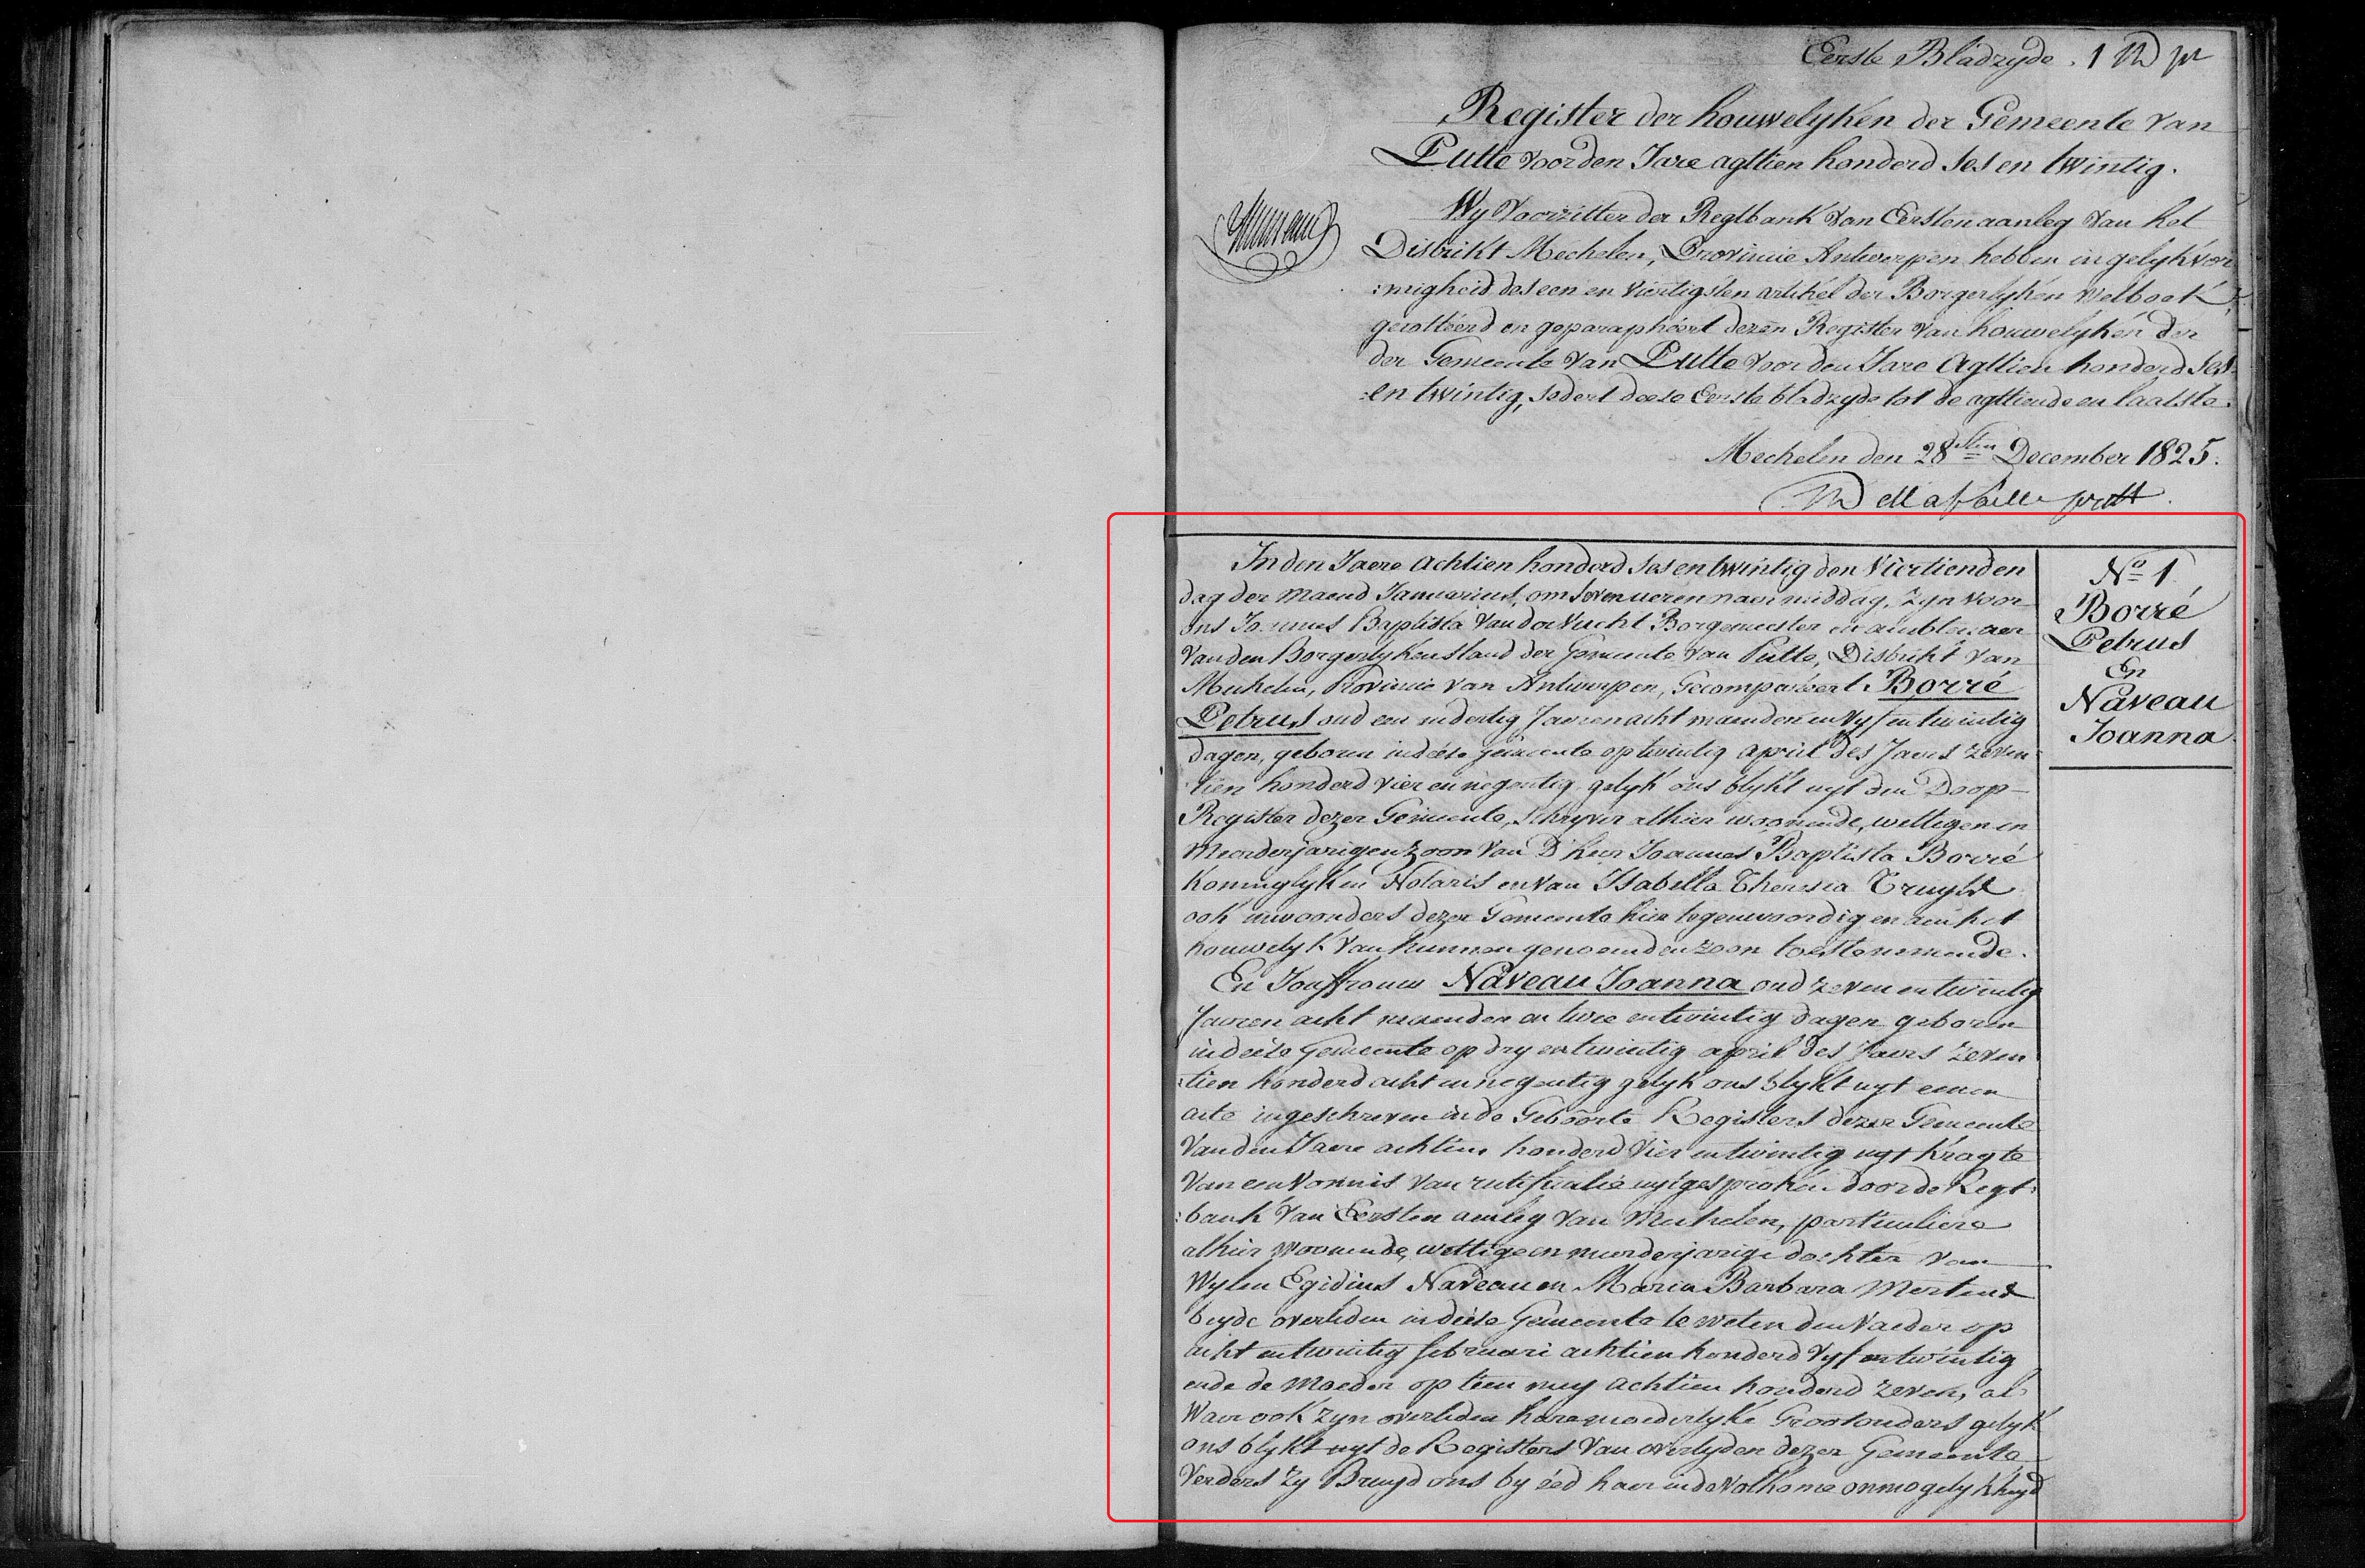 Eerste Bladzyde . 1
Register der houwelyken der Gemeente van
Putte voor den Jare agttien honderd ses en twintig.
Wy Voorzitter der Regtbank van Eersten aanleg van het
Distrikt Mechelen, Provincie Antwerpen hebben in gelykvor
:migheid des een en viertigsten artikel der Borgerlyken wetboek,
gecotteerd en geparapheert dezen Register van houwelyken der
der Gemeente van Putte voor den Jare Agttien honderd ses
:en twintig, sedert deese Eerste bladzyde tot de agttiende en laatste.
Mechelen den 28sten December 1825.
In den Jaere achtien honderd ses en twintig den Viertienden
dag der maend Januarius, om seven ueren naer middag, zyn voor
ons Joannes Baptista Van der Vucht Borgemeester en ambtenaer
van den Borgerlyken stand der Gemeente van Putte, Distrikt van
Mechelen, Provincie van Antwerpen, Gecompareert Borré
Petrus oud een en dertig Jaeren acht maenden en vyf en twintig
dagen, geboren in deese gemeente op twintig april des Jaers zeven
tien honderd vier en negentig gelyk ons blykt uyt den Doop-
Register dezer Gemeente, schryver alhier woonende, wettigen en
Meerderjarigen zoon van D'heer Joannes Baptista Borré
Koninglyken Notaris en van Isabella Theresia Truyts
ook inwoonders dezer Gemeente hier tegenwoordig en aen het
houwelyk van hunnen genoemden zoon toestemmende.
En Jouffrouw Naveau Joanna oud zeven en twintig
Jaeren acht maenden en twee en twintig dagen geboren
in deese Gemeente op dry en twintig april des Jaers zeven
:tien honderd acht en negentig gelyk ons blykt uyt eenen
acte ingeschreven in de Geboorte Registers dezer Gemeente
van den Jaere achtien honderd vier en twintig uyt kragte
van een vonnis van rectificatie uytgesproken door de Regt:
:bank van Eersten aenleg van Mechelen, particuliere
alhier woonende, wettige en meerderjarige dochter van
wylen Egidius Naveau en Maria Barbara Mertens
beyde overleden in deese Gemeente te weten den Vaeder op
acht en twintig februari achtien honderd vyf en twintig
ende de Moeder op tien mey achtien honderd zeven, al
waer ook zyn overleden hare moederlyke Grootouders gelyk
ons blykt uyt de Registers van overlyden dezer Gemeente
Verders zy Bruyd ons by eed haer in de volkome onmogelykheyd
No 1
Borré
Petrus
En
Naveau
Joanna